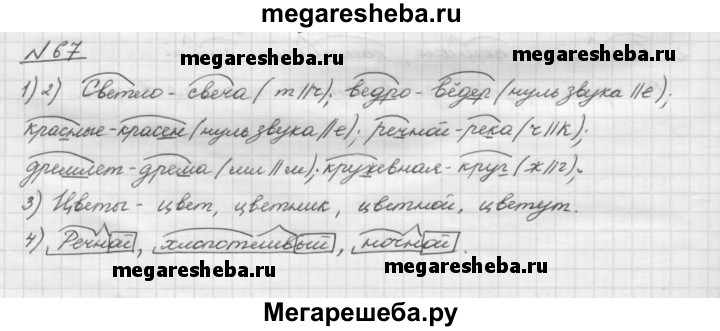 megaresheba.ru
№ 67
megaresheba.ru
1) 2) Светло - свеча (т||ч); ведро - вёдер (нуль звука||е);
красные - красен (нуль звука||е); речной - река (ч||к);
дремлет - дрема (мл||м); кружевная - круг (ж||г);
3) Цветы - цвет, цветник, цветной, цветут.
4) Речной, хлопотливый, ночной.
megaresheba.ru megaresheba.ru
Мегарешеба.ру